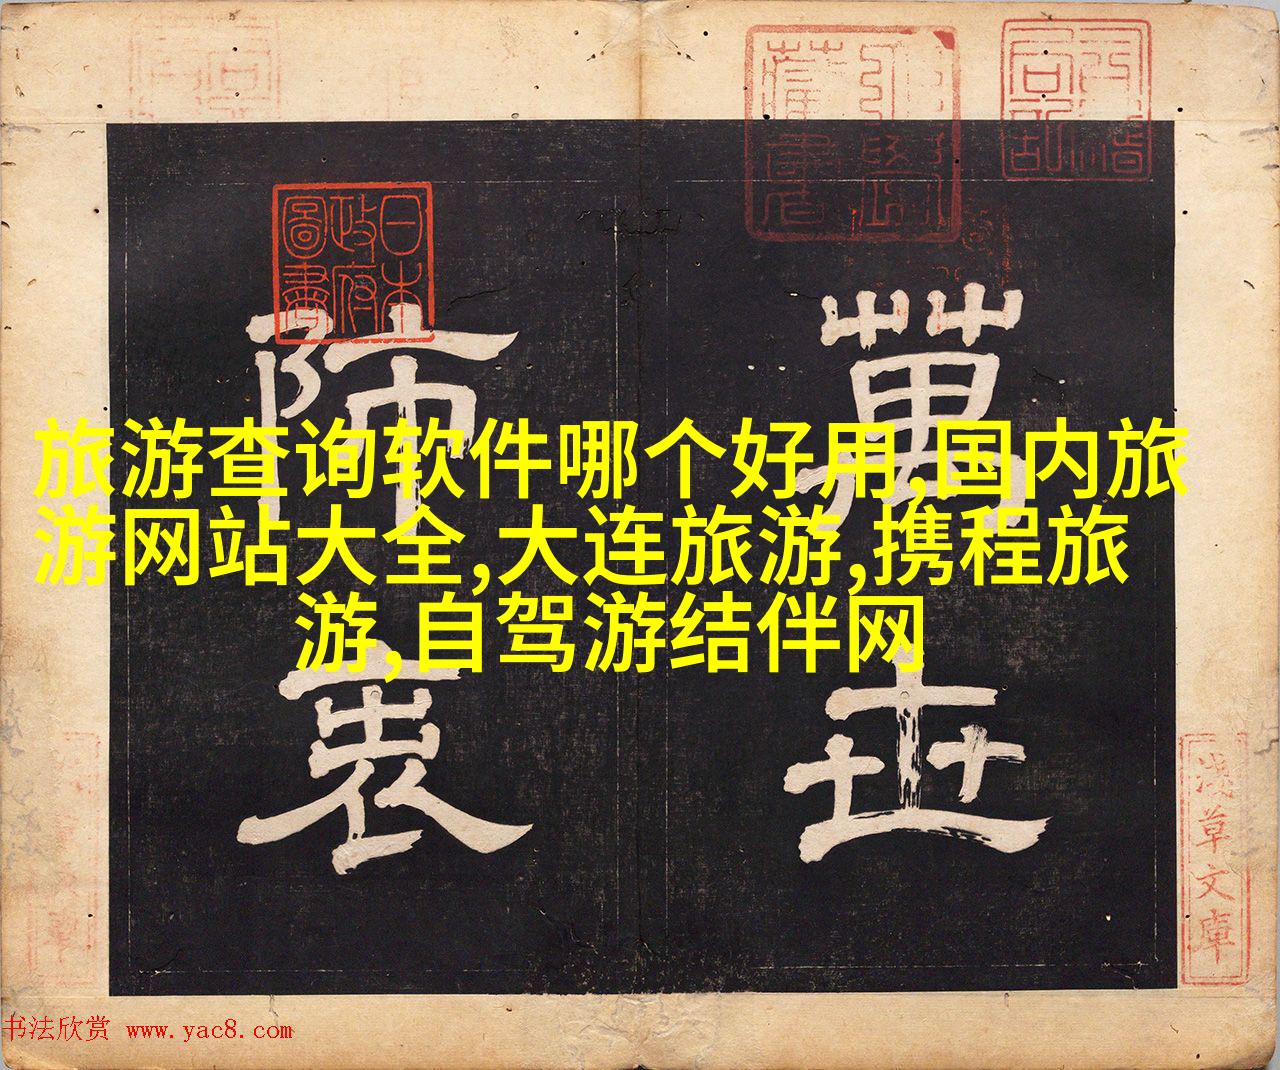 旅游查询软件哪个好用,国内旅
游网站大全,大连旅游,携程旅
游,自驾游结伴网
萬世
師表
日本
政府
圖書
淺草文庫
书法欣赏 www.yac8.com